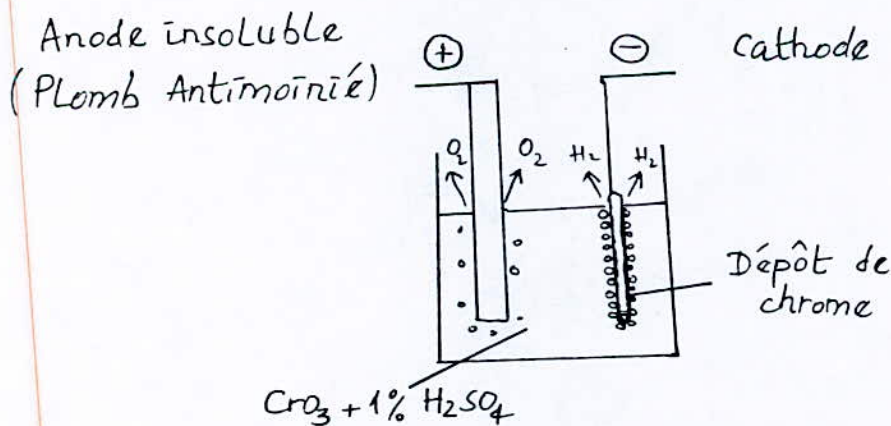 Anode insoluble
(Plomb Antimoinié)
+
−
Cathode
O₂
O₂
H₂
H₂
Dépôt de
chrome
CrO₃ + 1% H₂SO₄